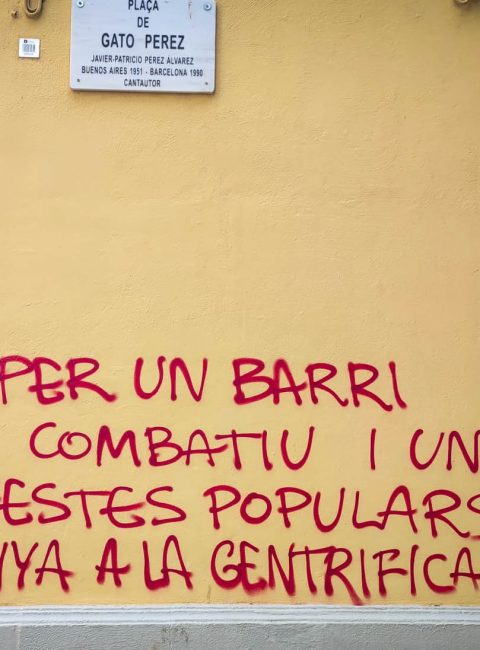 PLAÇA
DE
GATO PEREZ
JAVIER-PATRICIO PÉREZ ÁLVAREZ
BUENOS AIRES 1951 - BARCELONA 1990
CANTAUTOR
PER UN BARRI
COMBATIU I UN
ESTES POPULARS
NYA A LA GENTRIFICA